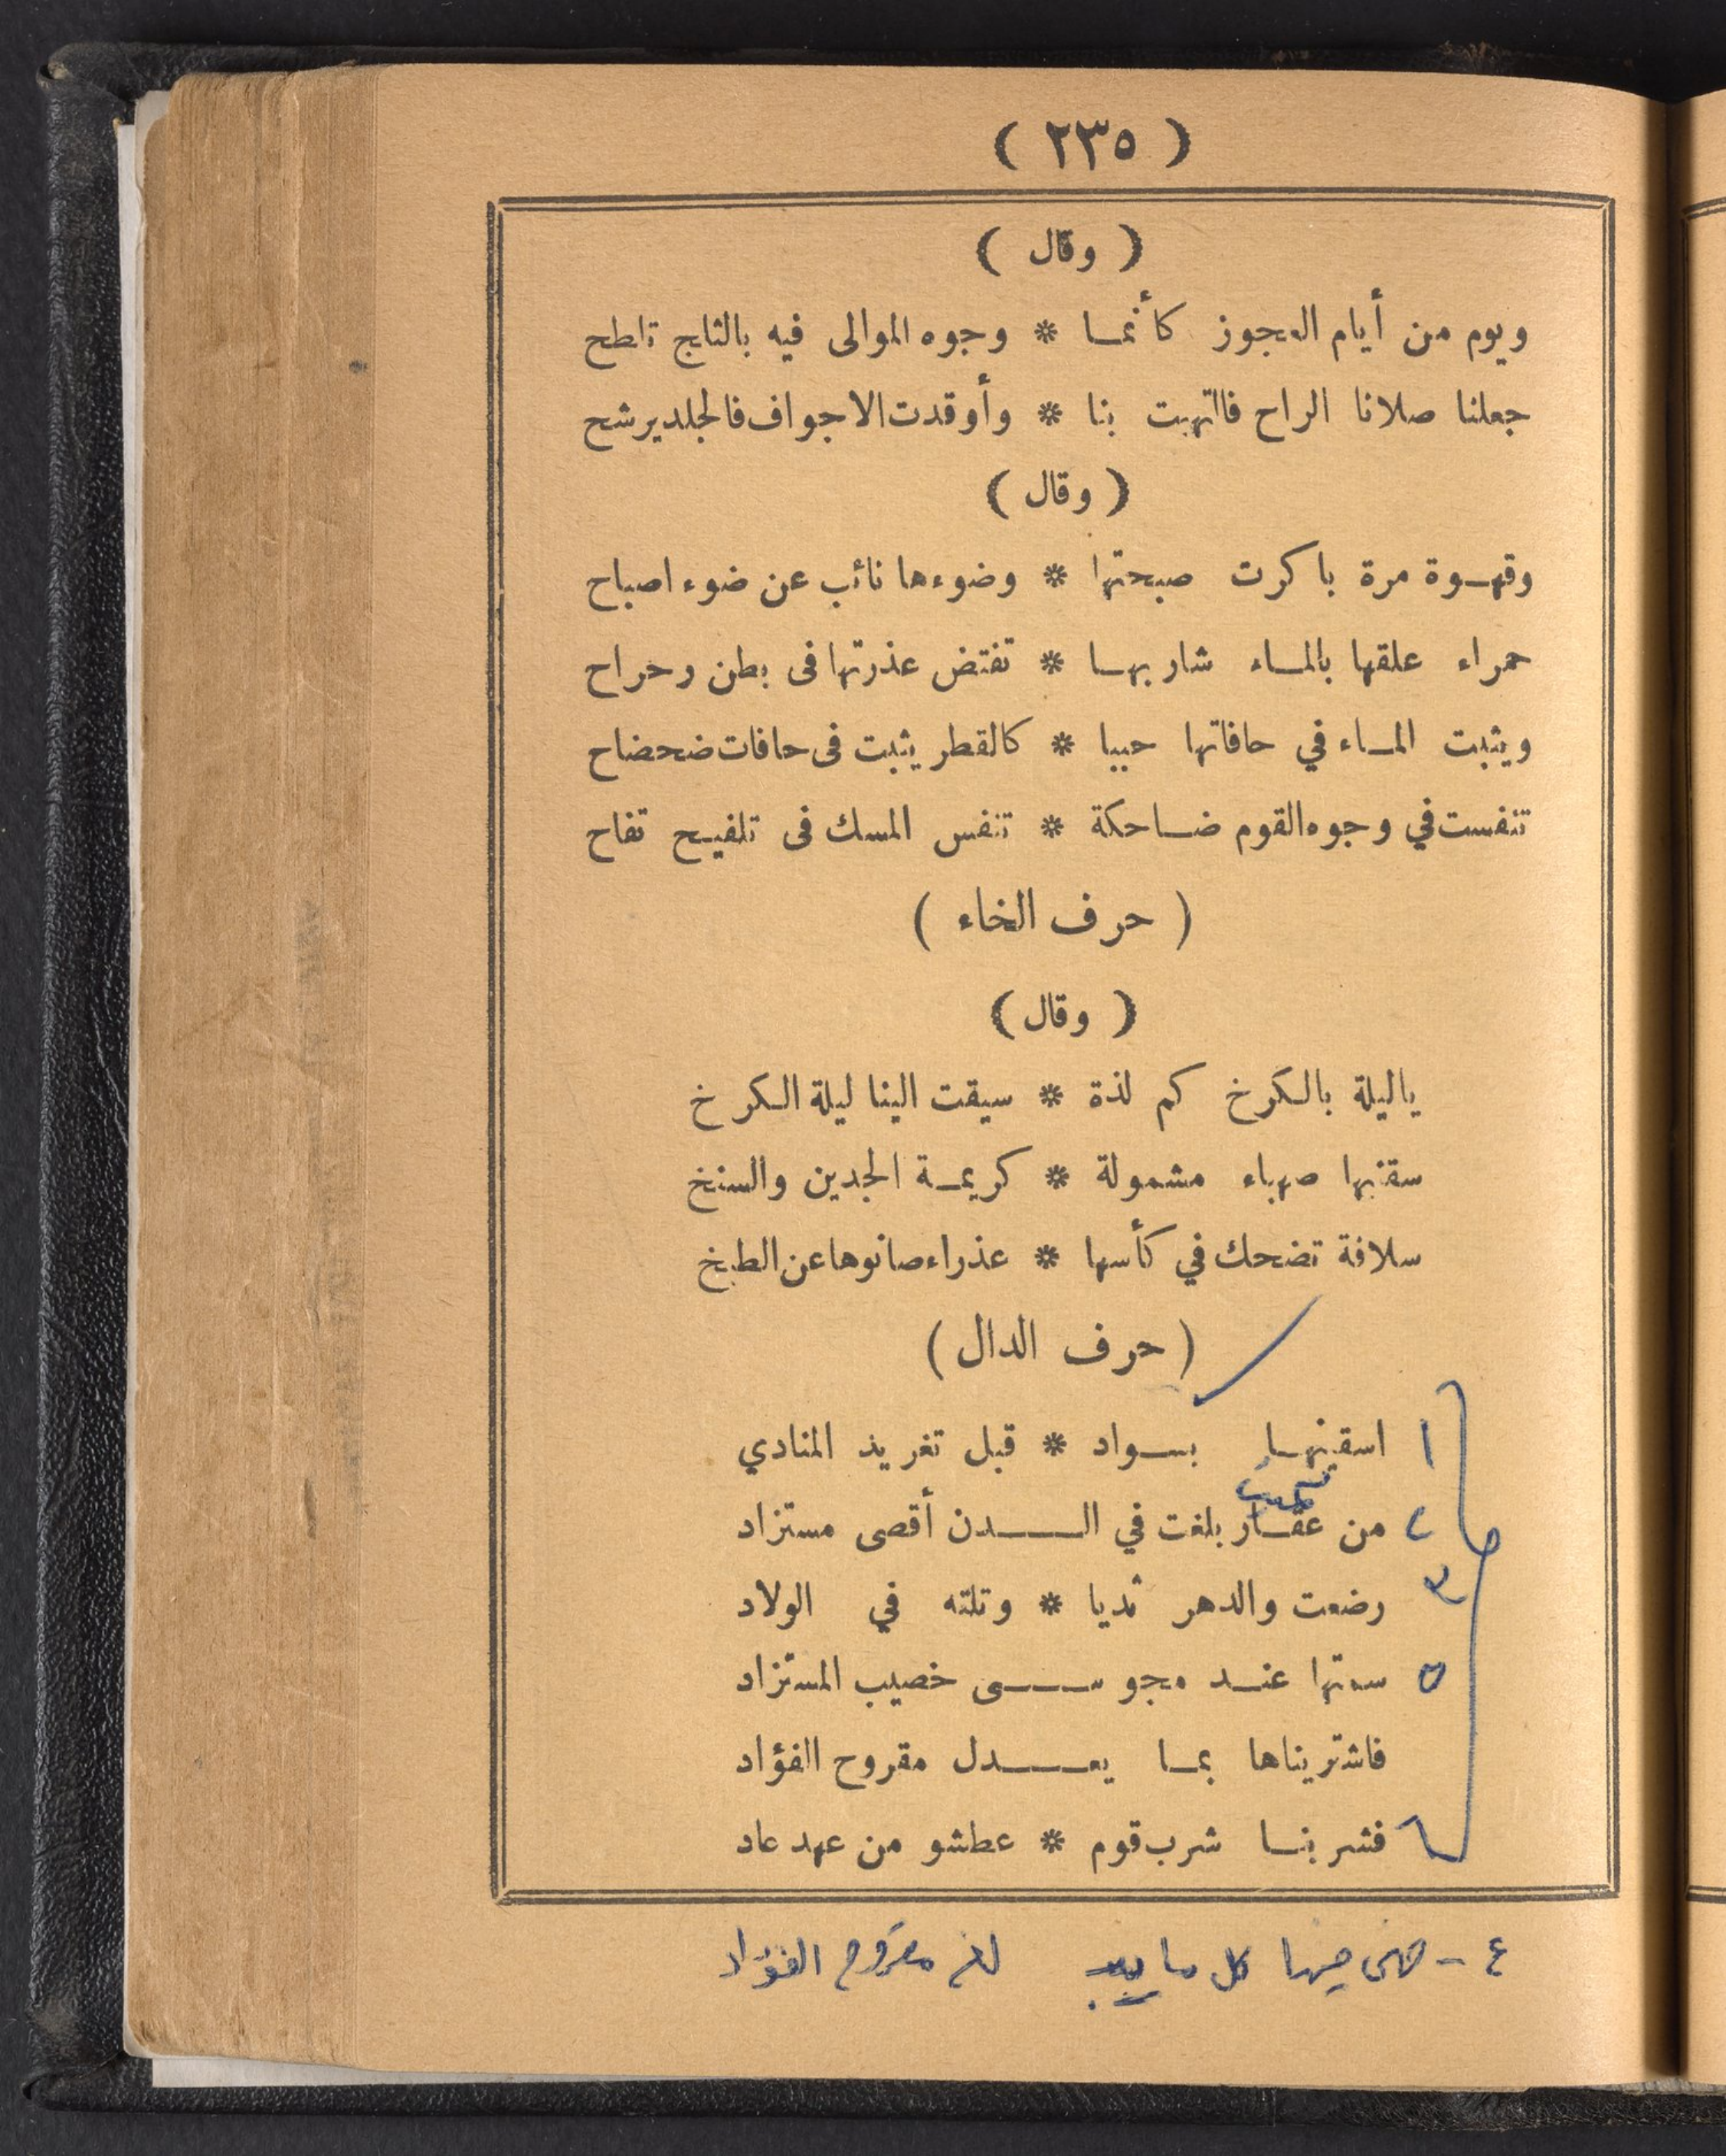 ( ٢٣٥ )
( وقال )
ويوم من أيام العجوز كأنما * وجوه الموالى فيه بالثلج تلطح
جعلنا صلانا الراح فالتهبت بنا * وأوقدت الاجواف فالجلد يرشح
( وقال )
وقهوة مرة باكرت صبحتها * وضوءها نائب عن ضوء اصباح
حمراء علقها بالماء شاربها * تفتض عذرتها فى بطن رحراح
ويثبت الماء في حافاتها حببا * كالقطر يثبت فى حافات ضحضاح
تنفست في وجوه القوم ضاحكة * تنفس المسك فى تلفيح تفاح
( حرف الخاء )
( وقال )
ياليلة بالكرخ كم لذة * سيقت الينا ليلة الكرخ
سقنيها صهباء مشمولة * كريمة الجدين والسنخ
سلافة تضحك في كأسها * عذراء صانوها عن الطبخ
( حرف الدال )
١ اسقينها بسواد * قبل تغريد المنادي
كميت
٢ من عقار بلغت في الدن أقصى مستزاد
٣ رضعت والدهر ثديا * وتلته في الولاد
٥ سمتها عند مجوسى خصيب المستزاد
فاشتريناها بما يعدل مقروح الفؤاد
٦ فشربنا شرب قوم * عطشو من عهد عاد
٤ - فيها كل ما مقروح الفؤاد